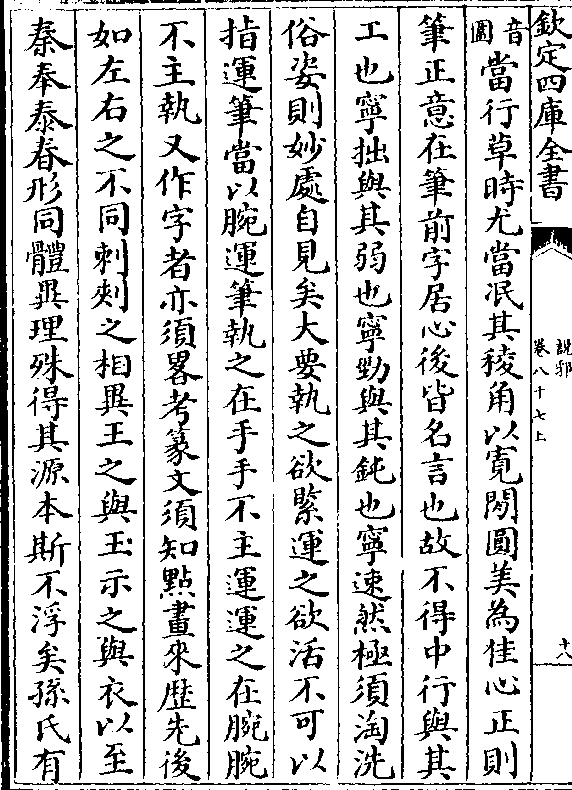 欽定四庫全書
說郛
卷八十七上
十八
音圓當行草時尤當泯其稜角以寛閒圓美為佳心正則
筆正意在筆前字居心後皆名言也故不得中行與其
工也寧拙與其弱也寧勁與其鈍也寧速然極須淘洗
俗姿則妙處自見矣大要執之欲緊運之欲活不可以
指運筆當以腕運筆執之在手手不主運運之在腕腕
不主執又作字者亦須畧考篆文須知點畫來歴先後
如左右之不同刺㓨之相異王之與玉示之與衣以至
秦奉泰春形同體異理殊得其源本斯不浮矣孫氏有